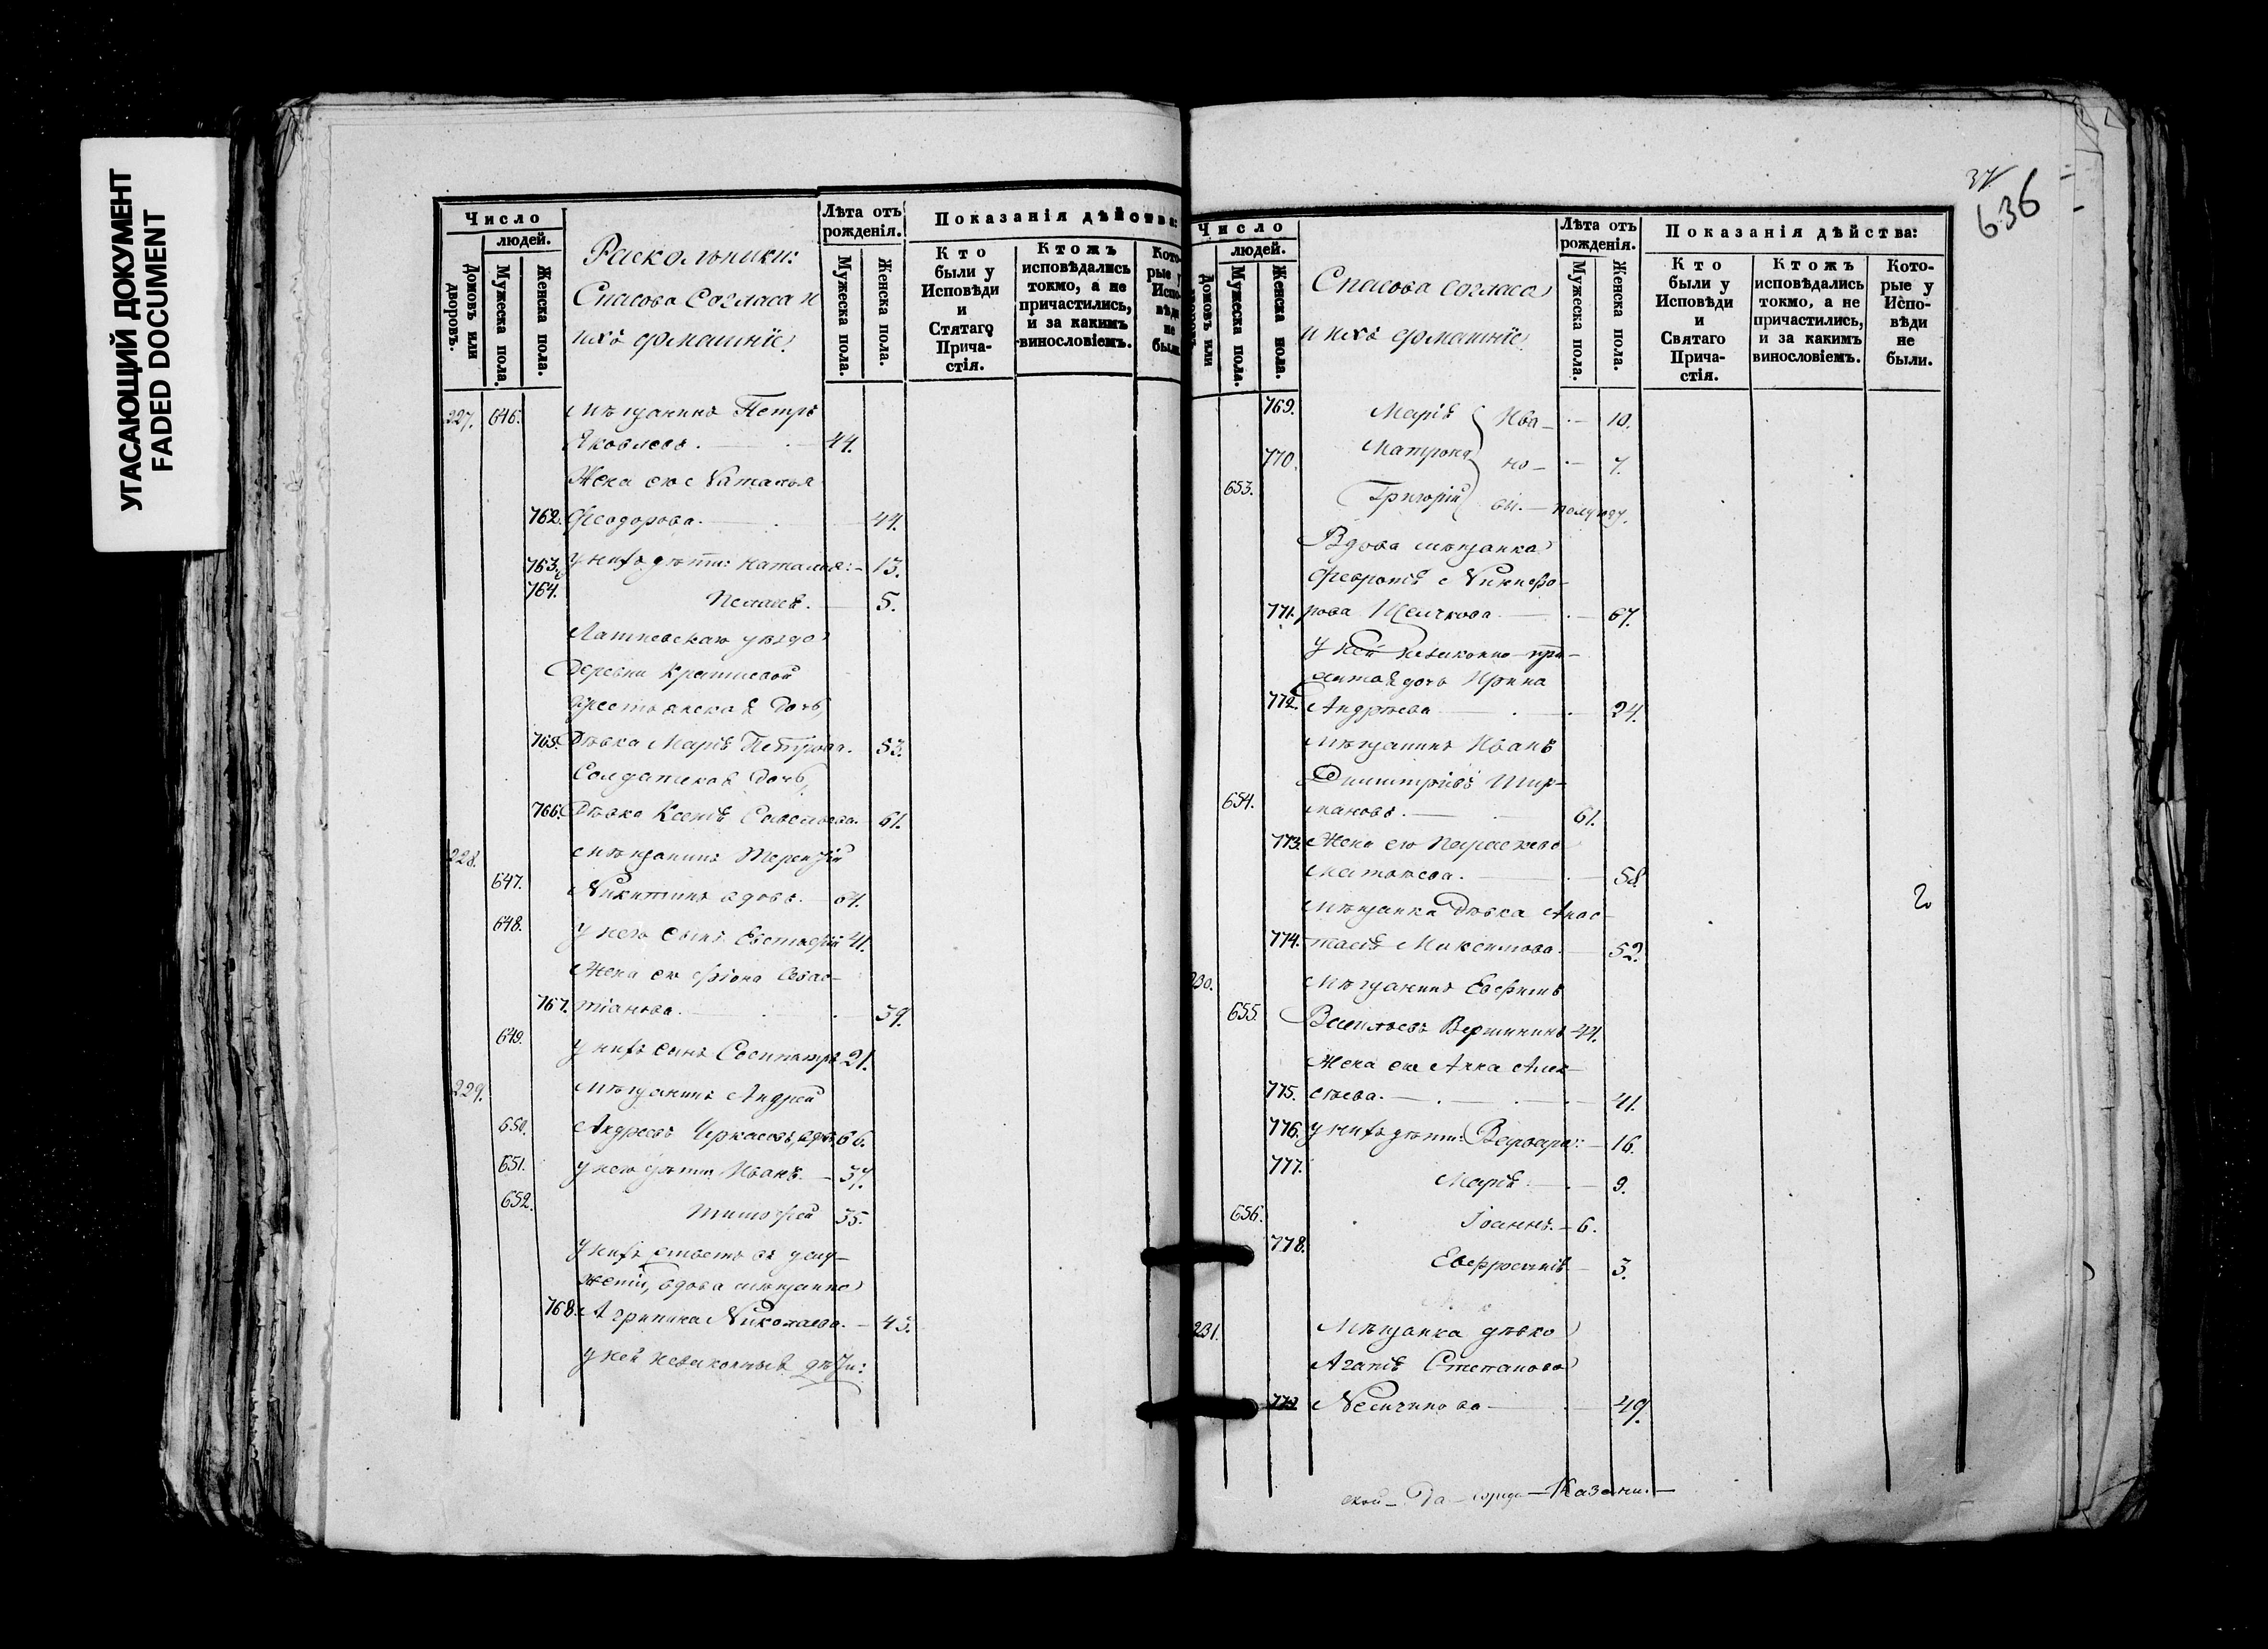 УГАСАЮЩИЙ ДОКУМЕНТ
FADED DOCUMENT
Число
людей.
Домовъ или дворовъ.
Мужеска пола.
Женска пола.
Раскольники:
Спасова Согласа и
ихъ домашніе.
Лѣта отъ рожденія.
Мужеска пола.
Женска пола.
Показанія дѣйства:
Кто были у Исповѣди и Стятаго Причастія.
Ктожъ исповѣдались токмо, а не причастились, и за какимъ винословіемъ.
Кото-
рые у
Испо-
вѣди
не
были.
227. 646. Мѣщанинъ Петръ
Яковлевъ. 44.
Жена его Наталья
762. Феодорова. 44.
763. у нихъ дѣти: Наталія: 13.
764. Пелагія. 5.
Лаишевскаго уѣзда
Деревни
крестьянская дочь,
765. Дѣвка Марія Петрова. 53.
Солдатская дочь,
766. Дѣвка Ксенія Савельева. 61.
228. Мѣщанинъ Терентій
647. Никитинъ вдовъ. 64.
648. у него сынъ Евстафій 41.
Жена его Фіона Севас-
767. тіанова. 39.
649. у нихъ сынъ Сосипатръ 21.
229. Мѣщанинъ Андрей
650. Андреевъ Черкасовъ, вдовъ 66.
651. у него дѣти: Иванъ. 37.
652. Тимофей 35.
у нихъ вмѣсто въ услу-
женіи, вдова мѣщанка
768. Агрипина Николаева. 45.
у ней незаконныя дѣти:
37
636
Число
людей.
Домовъ или дворовъ.
Мужеска пола.
Женска пола.
Спасова согласа
и ихъ домашніе.
Лѣта отъ рожденія.
Мужеска пола.
Женска пола.
Показанія дѣйства:
Кто были у Исповѣди и Святаго Причастія.
Ктожъ исповѣдались токмо, а не причастились, и за какимъ винословіемъ.
Которые у Исповѣди не были.
769. Марія Ива- 10.
770. Матрона но- 7.
653. Григорій вы. полугоду.
Вдова мѣщанка
Февронія Никифо-
771. рова 67.
у ней незаконно при-
житая дочь Ирина
772. Андрѣева 24.
Мѣщанинъ Иванъ
Димитріевъ Шир-
654. мановъ. 61.
773. Жена его Параскева
Матвѣева. 58.
Мѣщанка дѣвка Анас-
774. тасія Максимова. 52.
230. Мѣщанинъ Евфимъ
655. Васильевъ Вершининъ 44.
Жена его Анна Алек-
775. сѣева. 41.
776. у нихъ дѣти: Варвара: 16.
777. Марія. 9.
656. Іоаннъ. 6.
778. Евфросинія 3.
231. Мѣщанка дѣвка
Агапія Степанова
779. 49.
ской – да – города – Казани. –